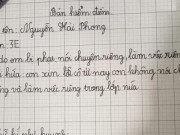 Bản kiểm điểm
tên: Nguyễn Hải Phong
3E
do em bị phạt nói chuyện riêng, làm việc riên
hứa, em xin lỗi cô từ nay em không nói ch
và làm việc riêng trong lớp nữa